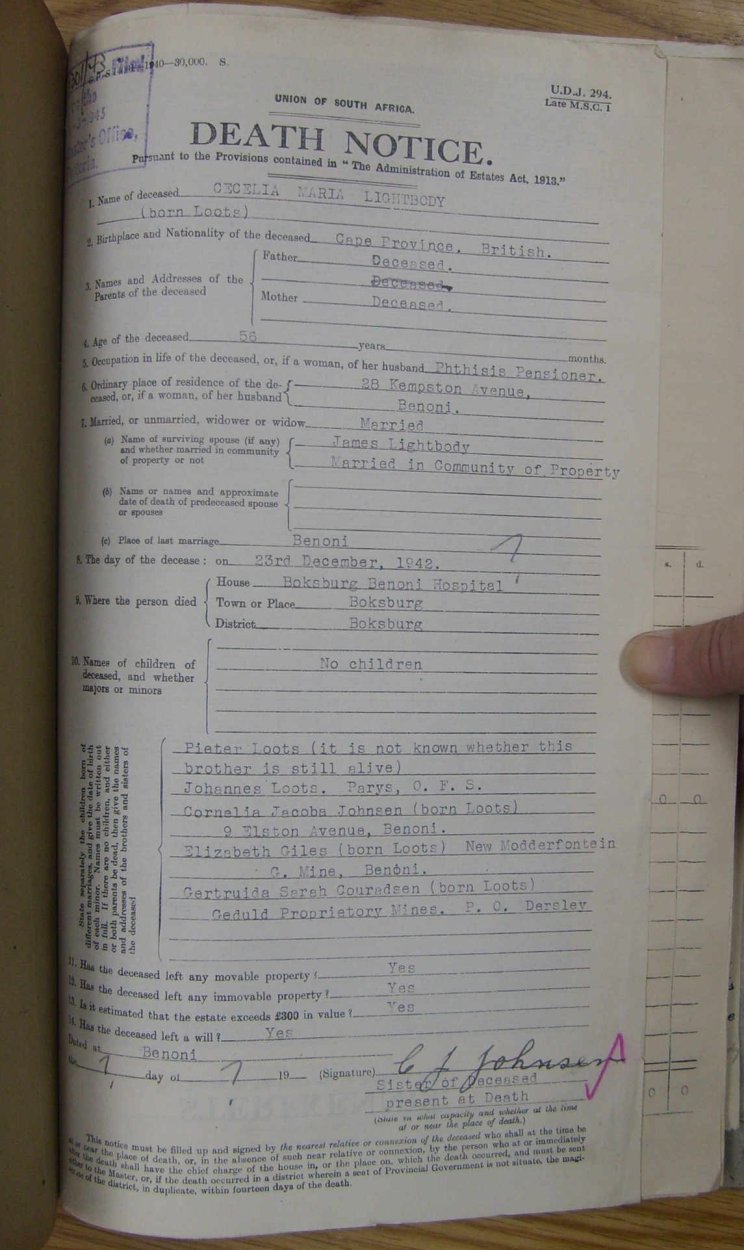 1940—30,000. S.
U.D.J. 294.
Late M.S.C. 1
Filed
Office,
UNION OF SOUTH AFRICA.
DEATH NOTICE.
Pursuant to the Provisions contained in "The Administration of Estates Act, 1913."
1. Name of deceased CECELIA MARIA LIGHTBODY
(born Loots)
2. Birthplace and Nationality of the deceased Cape Province, British.
3. Names and Addresses of the Parents of the deceased
Father Deceased.
Deceased.
Mother Deceased.
4. Age of the deceased 56 years months.
5. Occupation in life of the deceased, or, if a woman, of her husband Phthisis Pensioner.
6. Ordinary place of residence of the de- 28 Kempston Avenue,
ceased, or, if a woman, of her husband Benoni.
7. Married, or unmarried, widower or widow Married
(a) Name of surviving spouse (if any) James Lightbody
and whether married in community
of property or not Married in Community of Property
(b) Name or names and approximate
date of death of predeceased spouse
or spouses
(c) Place of last marriage Benoni
8. The day of the decease: on 23rd December, 1942.
9. Where the person died
House Boksburg Benoni Hospital
Town or Place Boksburg
District Boksburg
10. Names of children of
deceased, and whether No children
majors or minors
State separately the children born of
different marriages, and give the date of birth
of each minor. Names must be written out
in full. If there are no children, and either
or both parents be dead, then give the names
and addresses of the brothers and sisters of
the deceased
Pieter Loots (it is not known whether this
brother is still alive)
Johannes Loots. Parys, O. F. S.
Cornelia Jacoba Johnsen (born Loots)
9 Elston Avenue, Benoni.
Elizabeth Giles (born Loots) New Modderfontein
G. Mine, Benoni.
Gertruida Sarah Couradsen (born Loots)
Geduld Proprietory Mines. P. O. Dersley
11. Has the deceased left any movable property? Yes
12. Has the deceased left any immovable property? Yes
13. Is it estimated that the estate exceeds £300 in value? Yes
14. Has the deceased left a will? Yes
Dated at Benoni
the day of 19 (Signature) C J Johnsen
Sister of deceased
present at Death
(State in what capacity and whether at the time
at or near the place of death.)
This notice must be filled up and signed by the nearest relative or connexion of the deceased who shall at the time be
at or near the place of death, or, in the absence of such near relative or connexion, by the person who at or immediately
after the death shall have the chief charge of the house in, or the place on, which the death occurred, and must be sent
either to the Master, or, if the death occurred in a district wherein a seat of Provincial Government is not situate, the magi-
strate of the district, in duplicate, within fourteen days of the death.
s. d.
0 0
0 0